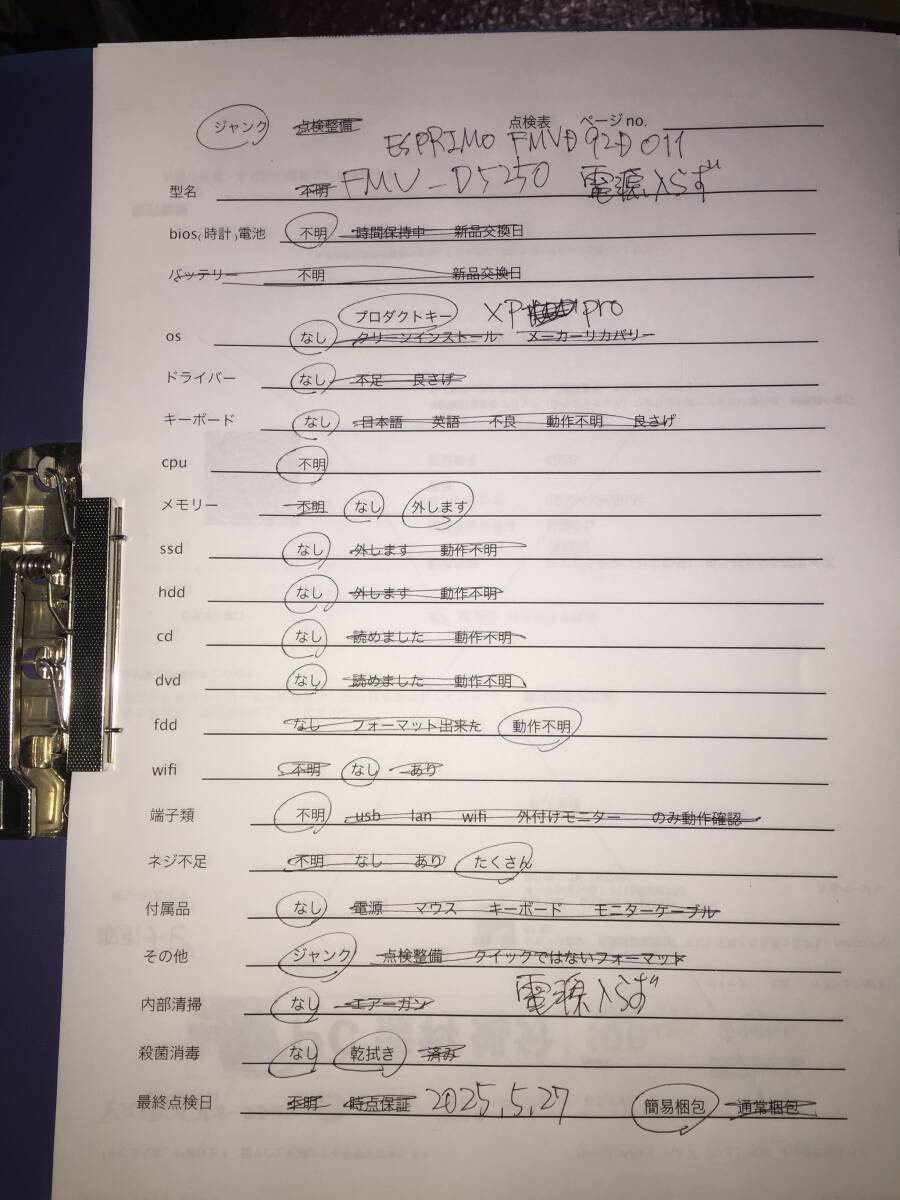 ジャンク 点検整備 点検表 ページno.
ESPRIMO FMVD92D011
型名 不明 FMV-D5250 電源入らず
bios(時計)電池 不明 時間保持中 新品交換日
バッテリー 不明 新品交換日
プロダクトキー XP pro
os なし クリーンインストール メーカーリカバリー
ドライバー なし 不足 良さげ
キーボード なし 日本語 英語 不良 動作不明 良さげ
cpu 不明
メモリー 不明 なし 外します
ssd なし 外します 動作不明
hdd なし 外します 動作不明
cd なし 読めました 動作不明
dvd なし 読めました 動作不明
fdd なし フォーマット出来た 動作不明
wifi 不明 なし あり
端子類 不明 usb lan wifi 外付けモニター のみ動作確認
ネジ不足 不明 なし あり たくさん
付属品 なし 電源 マウス キーボード モニターケーブル
その他 ジャンク 点検整備 クイックではないフォーマット
内部清掃 なし エアーガン 電源入らず
殺菌消毒 なし 乾拭き 済み
最終点検日 不明 時点保証 2025,5,27 簡易梱包 通常梱包